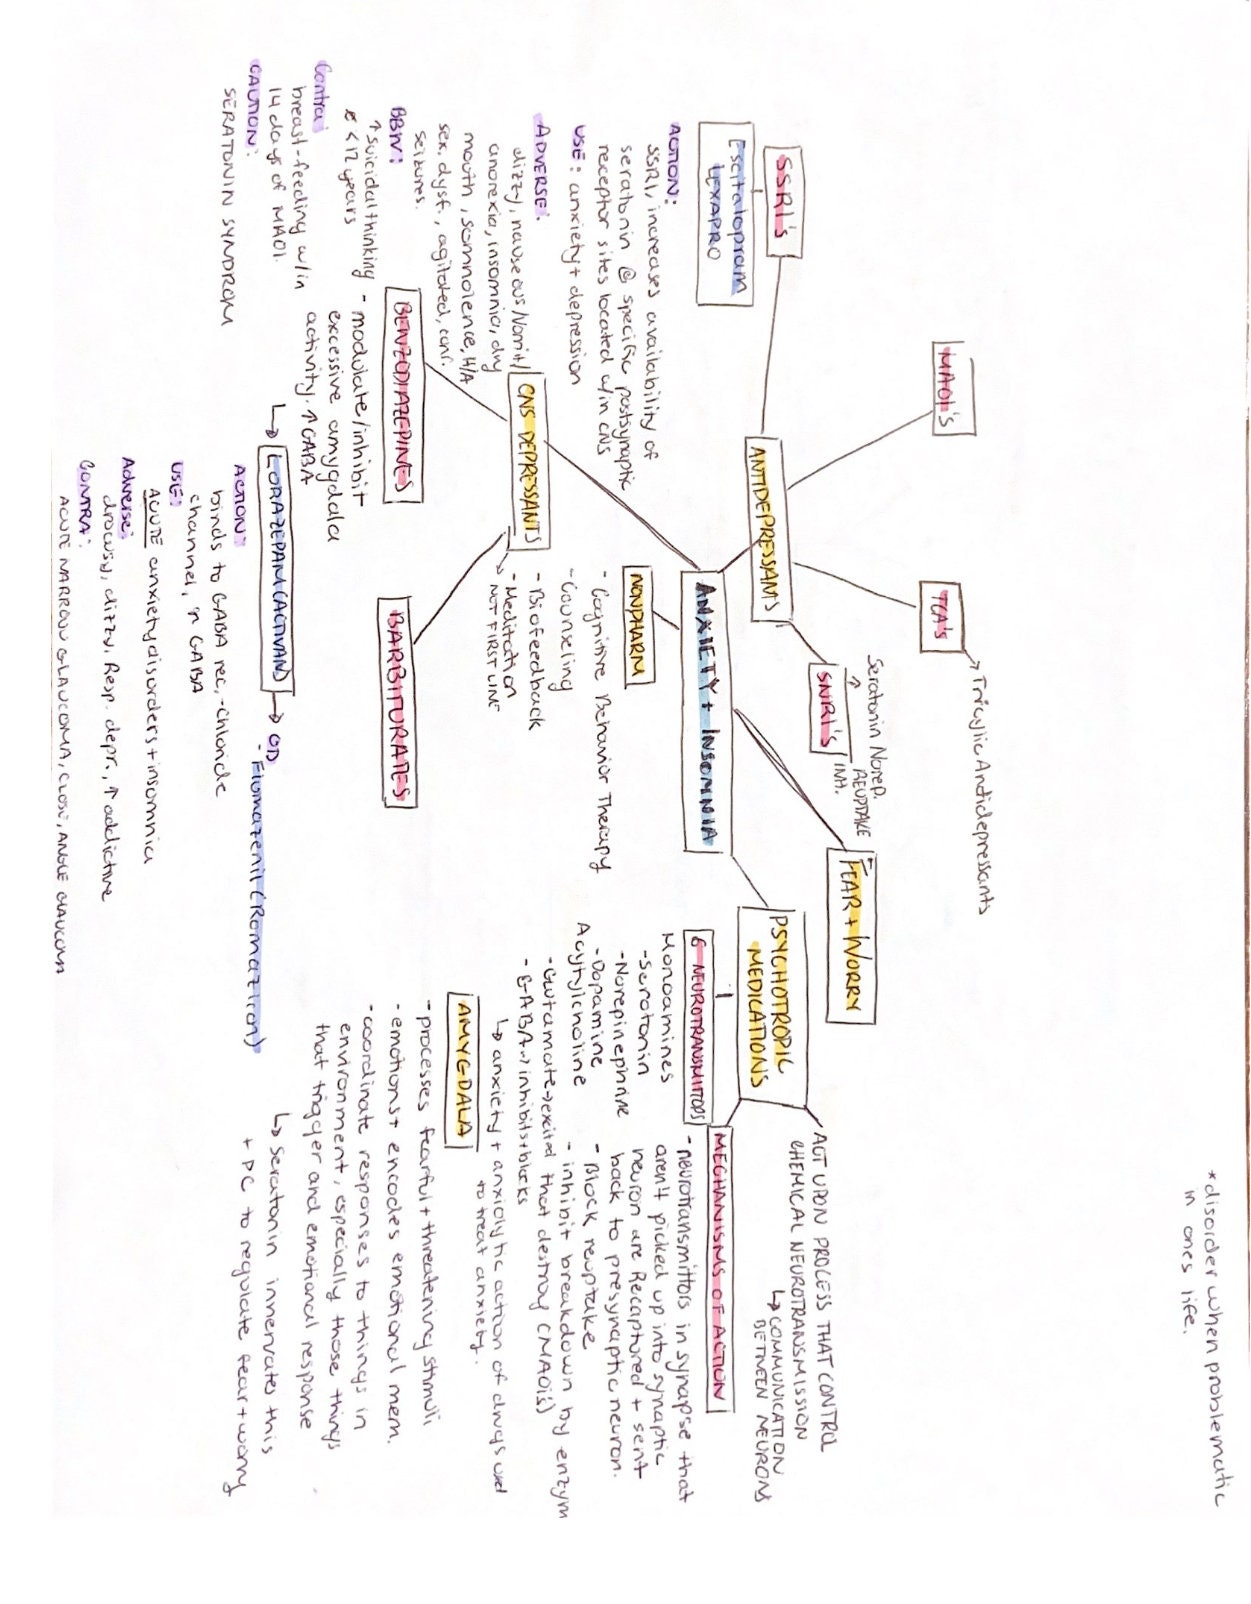 *disorder when problematic
in ones life.
MAOI's
TCA's
Tricylic Antidepressants
SSRI's
Escitalopram
LEXAPRO
ACTION:
SSRI, increases availability of
seratonin @ specific postsynaptic
receptor sites located w/in CNS
USE: anxiety + depression
ADVERSE:
dizzy, nauseous/vomit/
anorexia, insomnia, dry
mouth, somnolence, H/A
sex. dysf., agitated, conf.
seizures.
BBW:
↑ suicidal thinking
< 12 years
Contra:
breast-feeding w/in
14 days of MAOI.
CAUTION:
SERATONIN SYNDROM
ANTIDEPRESSANTS
SNRI's
Seratonin Norep.
REUPTAKE
INH.
FEAR + WORRY
ANXIETY + INSOMNIA
NONPHARM
- Cognitive Behavior Therapy
- Counseling
- Biofeedback
- Meditation
NOT FIRST LINE
CNS DEPRESSANTS
BENZODIAZEPINES
- modulate/inhibit
excessive amygdala
activity. ↑ GABA
BARBITURATES
↳ LORAZEPAM (ACTIVAN) → OD
- Flumazenil (Romazicon)
ACTION:
binds to GABA rec, -chloride
channel, ↑ GABA
USE:
ACUTE anxiety disorders + insomnia
Adverse:
drowsy, dizzy, Resp. depr., ↑ addictive
CONTRA:
ACUTE NARROW GLAUCOMA, CLOSE, ANGLE GLAUCOMA
PSYCHOTROPIC
MEDICATIONS
ACT UPON PROCESS THAT CONTROL
CHEMICAL NEUROTRANSMISSION
↳ COMMUNICATION
BETWEEN NEURONS
6 NEUROTRANSMITTORS
Monoamines
- Serotonin
- Norepinephrine
- Dopamine
Acytylcholine
- Glutamate → excited
- GABA → inhibits + blocks
↳ anxiety + anxiolytic action of drugs used
to treat anxiety.
MECHANISMS OF ACTION
- neurotransmittors in synapse that
aren't picked up into synaptic
neuron are Recaptured + sent
back to presynaptic neuron.
- Block reuptake
- inhibit breakdown by enzym
that destroy (MAOi's)
AMYGDALA
- processes fearful + threatening stimuli
- emotions + encodes emotional mem.
- coordinate responses to things in
environment, especially those things
that trigger and emotional response
↳ Seratonin innervates this
+ PC to regulate fear + worry